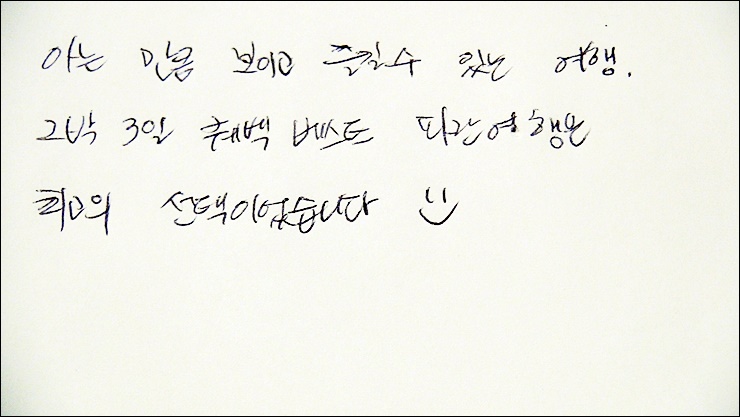 아는 만큼 보이고 즐길수 있는 여행.
2박 3일 퀘벡 베스트 파란여행은
최고의 선택이었습니다 :)